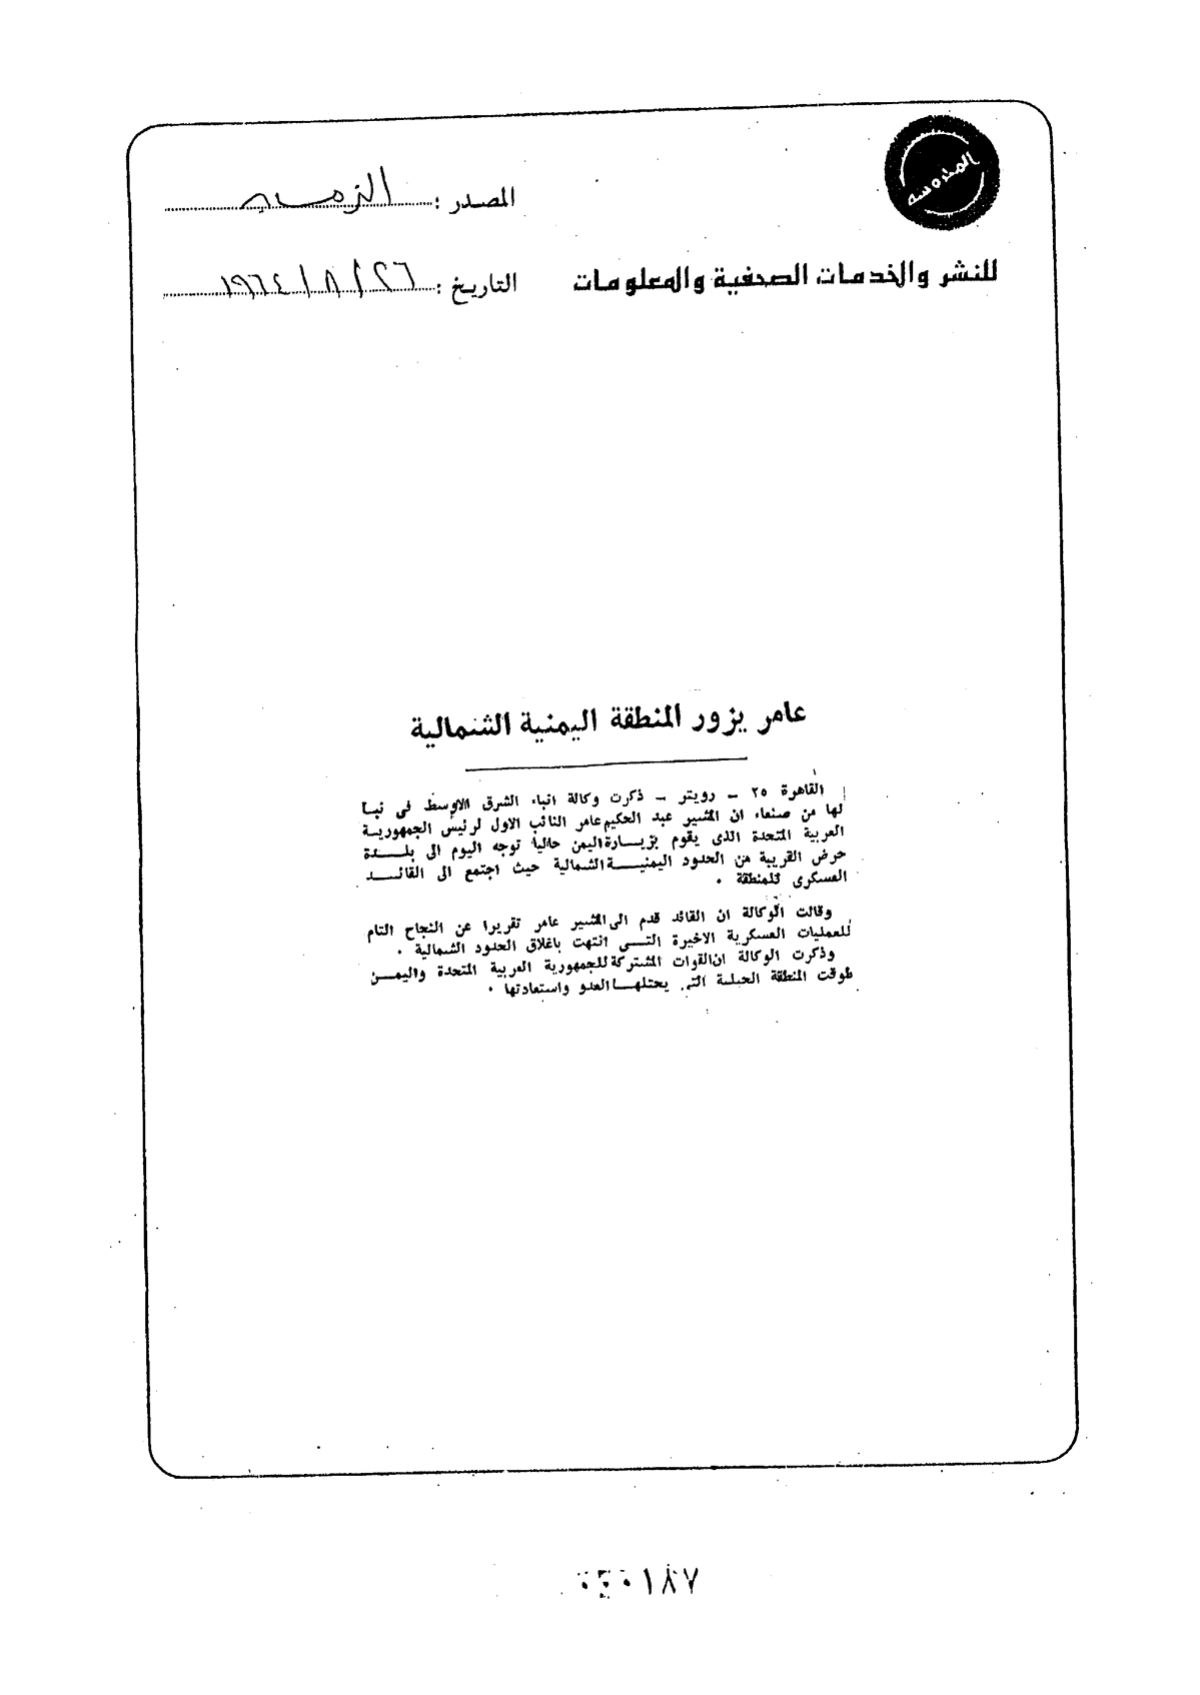 المحروسة
المصدر :
للنشر والخدمات الصحفية والمعلومات
التاريخ : ٢٦ / ٨ / ١٩٦٤
عامر يزور المنطقة اليمنية الشمالية
القاهرة ٢٥ - رويتر - ذكرت وكالة انباء الشرق الاوسط فى نبـا
لها من صنعاء ان المشير عبد الحكيم عامر النائب الاول لرئيس الجمهوريـة
العربية المتحدة الذى يقوم بزيـارة اليمن حاليا توجه اليوم الى بلـــدة
حرض القريبة من الحدود اليمنيـــة الشمالية حيث اجتمع الى القائـــد
العسكرى للمنطقة .
وقالت الوكالة ان القائد قدم الى المشير عامر تقريرا عن النجاح التام
للعمليات العسكرية الاخيرة التـــى انتهت باغلاق الحدود الشمالية .
وذكرت الوكالة ان القوات المشتركة للجمهورية العربية المتحدة واليمـــن
طوقت المنطقة الجبلية التى يحتلهــا العدو واستعادتها .